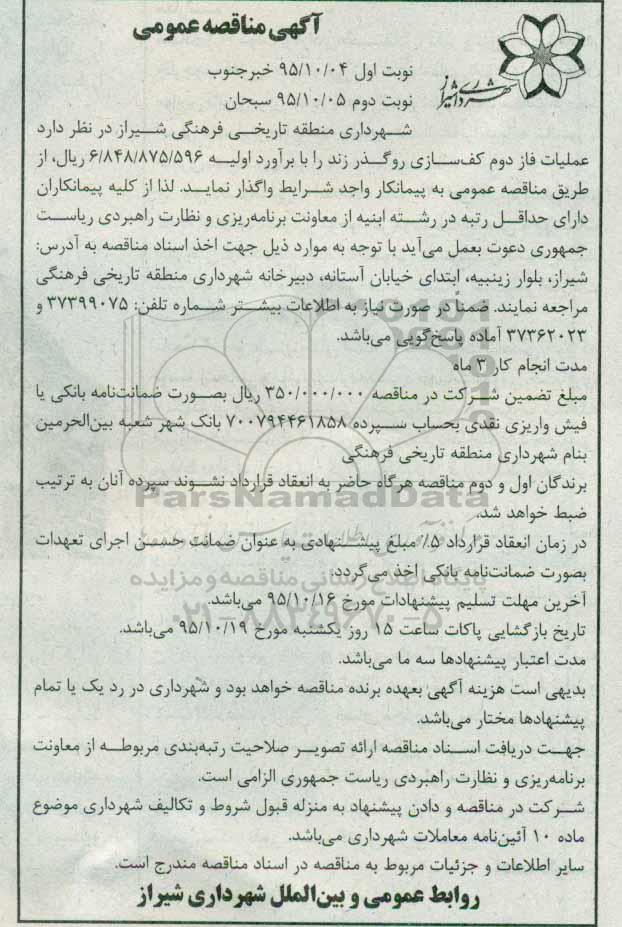 آگهی مناقصه عمومی
شهرداری شیراز
نوبت اول ۹۵/۱۰/۰۴ خبرجنوب
نوبت دوم ۹۵/۱۰/۰۵ سبحان
شهرداری منطقه تاریخی فرهنگی شیراز در نظر دارد
عملیات فاز دوم کف‌سازی روگذر زند را با برآورد اولیه ۶/۸۴۸/۸۷۵/۵۹۶ ریال، از
طریق مناقصه عمومی به پیمانکار واجد شرایط واگذار نماید. لذا از کلیه پیمانکاران
دارای حداقل رتبه در رشته ابنیه از معاونت برنامه‌ریزی و نظارت راهبردی ریاست
جمهوری دعوت بعمل می‌آید با توجه به موارد ذیل جهت اخذ اسناد مناقصه به آدرس:
شیراز، بلوار زینبیه، ابتدای خیابان آستانه، دبیرخانه شهرداری منطقه تاریخی فرهنگی
مراجعه نمایند. ضمناً در صورت نیاز به اطلاعات بیشتر شماره تلفن: ۳۷۳۹۹۰۷۵ و
۳۷۳۶۲۰۲۳ آماده پاسخ‌گویی می‌باشد.
مدت انجام کار ۳ ماه
مبلغ تضمین شرکت در مناقصه ۳۵۰/۰۰۰/۰۰۰ ریال بصورت ضمانت‌نامه بانکی یا
فیش واریزی نقدی بحساب سپرده ۷۰۰۷۹۴۴۶۱۸۵۸ بانک شهر شعبه بین‌الحرمین
بنام شهرداری منطقه تاریخی فرهنگی
برندگان اول و دوم مناقصه هرگاه حاضر به انعقاد قرارداد نشوند سپرده آنان به ترتیب
ضبط خواهد شد.
ParsNamadData
در زمان انعقاد قرارداد ۵٪ مبلغ پیشنهادی به عنوان ضمانت حسن اجرای تعهدات
بصورت ضمانت‌نامه بانکی اخذ می‌گردد.
پایگاه اطلاع رسانی مناقصه و مزایده
آخرین مهلت تسلیم پیشنهادات مورخ ۹۵/۱۰/۱۶ می‌باشد.
۰۲۱-۸۸۳۴۹۶۷۰-۵
تاریخ بازگشایی پاکات ساعت ۱۵ روز یکشنبه مورخ ۹۵/۱۰/۱۹ می‌باشد.
مدت اعتبار پیشنهادها سه ما می‌باشد.
بدیهی است هزینه آگهی بعهده برنده مناقصه خواهد بود و شهرداری در رد یک یا تمام
پیشنهادها مختار می‌باشد.
جهت دریافت اسناد مناقصه ارائه تصویر صلاحیت رتبه‌بندی مربوطه از معاونت
برنامه‌ریزی و نظارت راهبردی ریاست جمهوری الزامی است.
شرکت در مناقصه و دادن پیشنهاد به منزله قبول شروط و تکالیف شهرداری موضوع
ماده ۱۰ آئین‌نامه معاملات شهرداری می‌باشد.
سایر اطلاعات و جزئیات مربوط به مناقصه در اسناد مناقصه مندرج است.
روابط عمومی و بین‌الملل شهرداری شیراز